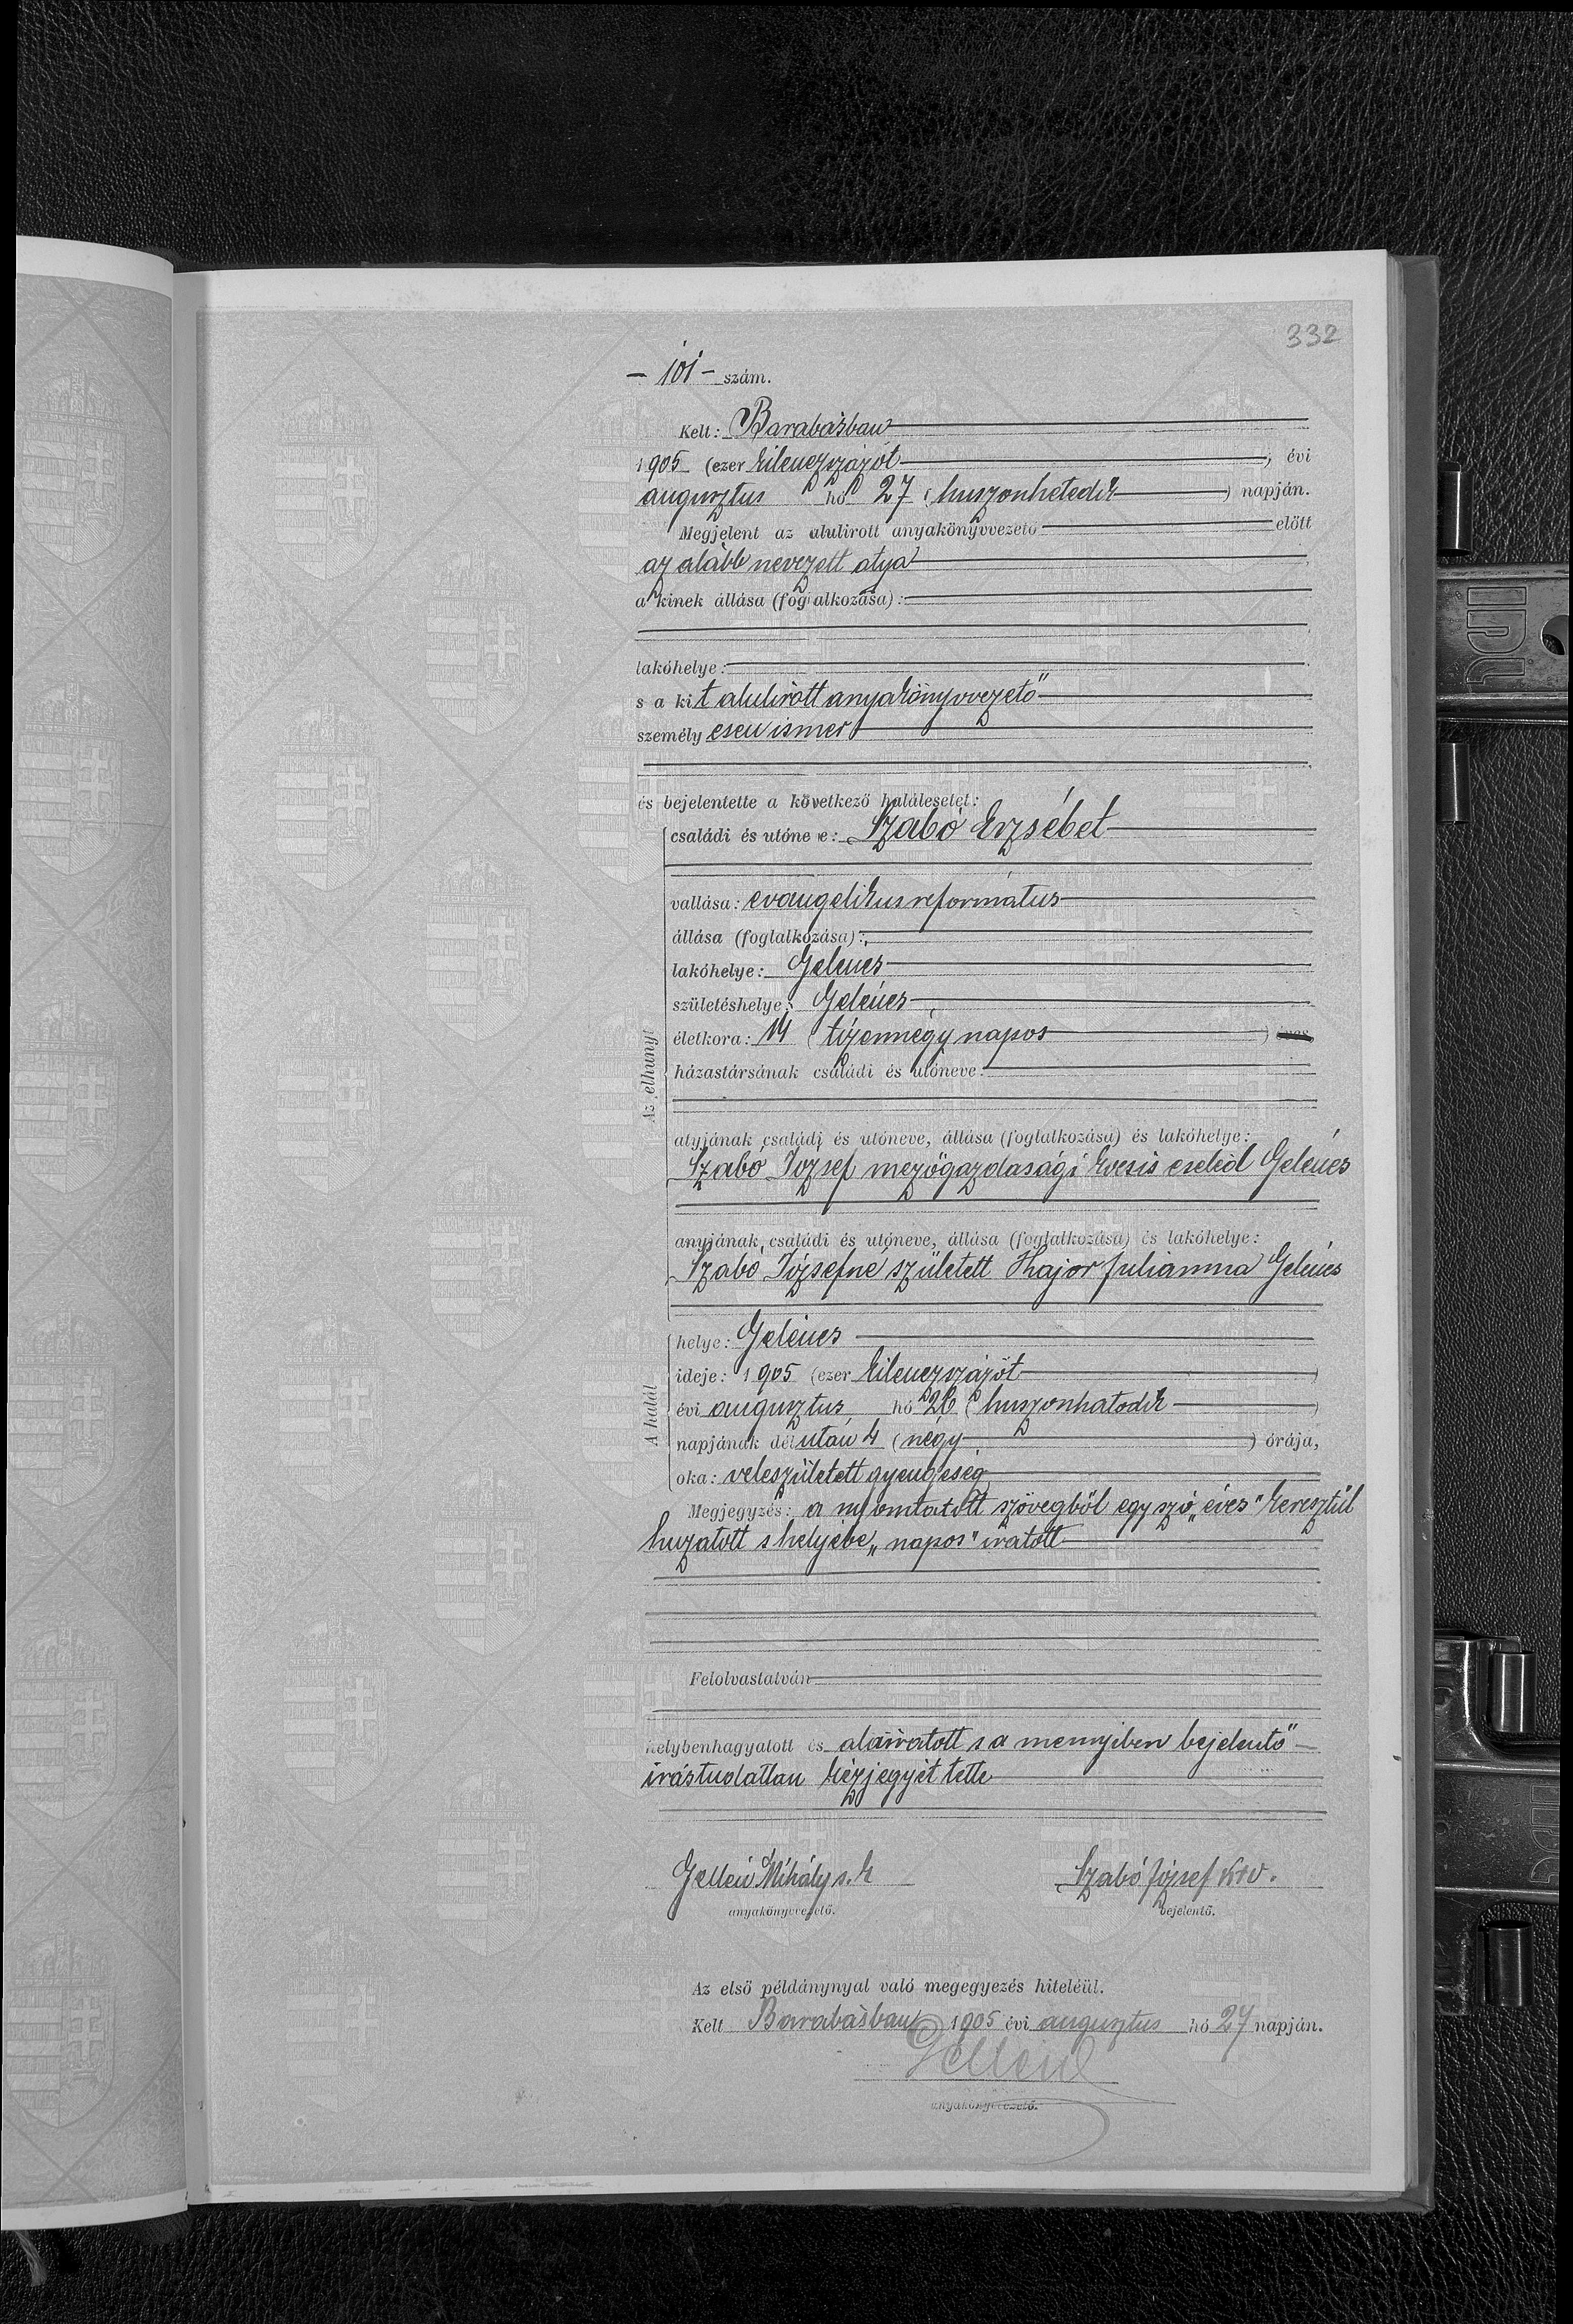 332
– 101 – szám.
Kelt: Barabásban
1905 (ezer kilenczszázöt ) évi
augusztus hó 27 (huszonhetedik ) napján.
Megjelent az alulirott anyakönyvvezető előtt
az alább nevezett atya
a kinek állása (foglalkozása):
lakóhelye:
s a kit alulirott anyakönyvvezető
személyesen ismer
és bejelentette a következő halálesetet:
Az elhunyt
családi és utóneve: Szabó Erzsébet
vallása: evangelikus református
állása (foglalkozása):
lakóhelye: Gelénes
születéshelye: Gelénes
életkora: 14 (tizennégy napos ) éves
házastársának családi és utóneve:
atyjának családi és utóneve, állása (foglalkozása) és lakóhelye:
Szabó József mezőgazdasági kocsis cseléd Gelénes
anyjának családi és utóneve, állása (foglalkozása) és lakóhelye:
Szabó Józsefné született Hajor Julianna Gelénes
A halál
helye: Gelénes
ideje: 1905 (ezer kilenczszázöt )
évi augusztus hó 26 (huszonhatodik )
napjának délután 4 (négy ) órája,
oka: veleszületett gyengeség
Megjegyzés: a nyomtatott szövegből egy szó „éves" keresztül
huzatott s helyébe „napos" iratott
Felolvastatván
helybenhagyatott és aláiratott s a mennyiben bejelentő
irástudatlan kézjegyét tette
Gellén Mihály s. k. Szabó József ktv.
anyakönyvvezető. bejelentő.
Az első példánynyal való megegyezés hiteléül.
Kelt Barabásban 1905 évi augusztus hó 27 napján.
Gellén
anyakönyvvezető.